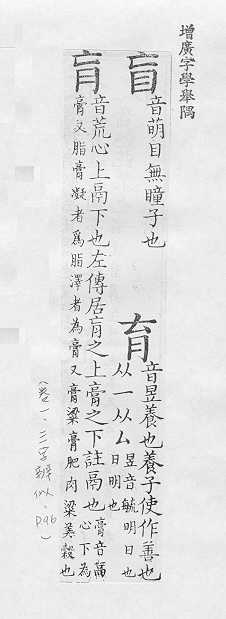 增廣字學舉隅
盲 音萌目無瞳子也
育 音昱養也養子使作善也
从一从厶
昱音毓明日也
日明也
肓 音荒心上鬲下也左傳居肓之上膏之下註鬲也
膏音
心下為
膏又脂膏凝者為脂澤者為膏又膏粱膏肥肉粱美穀也
（卷一．三字辨似．P96）